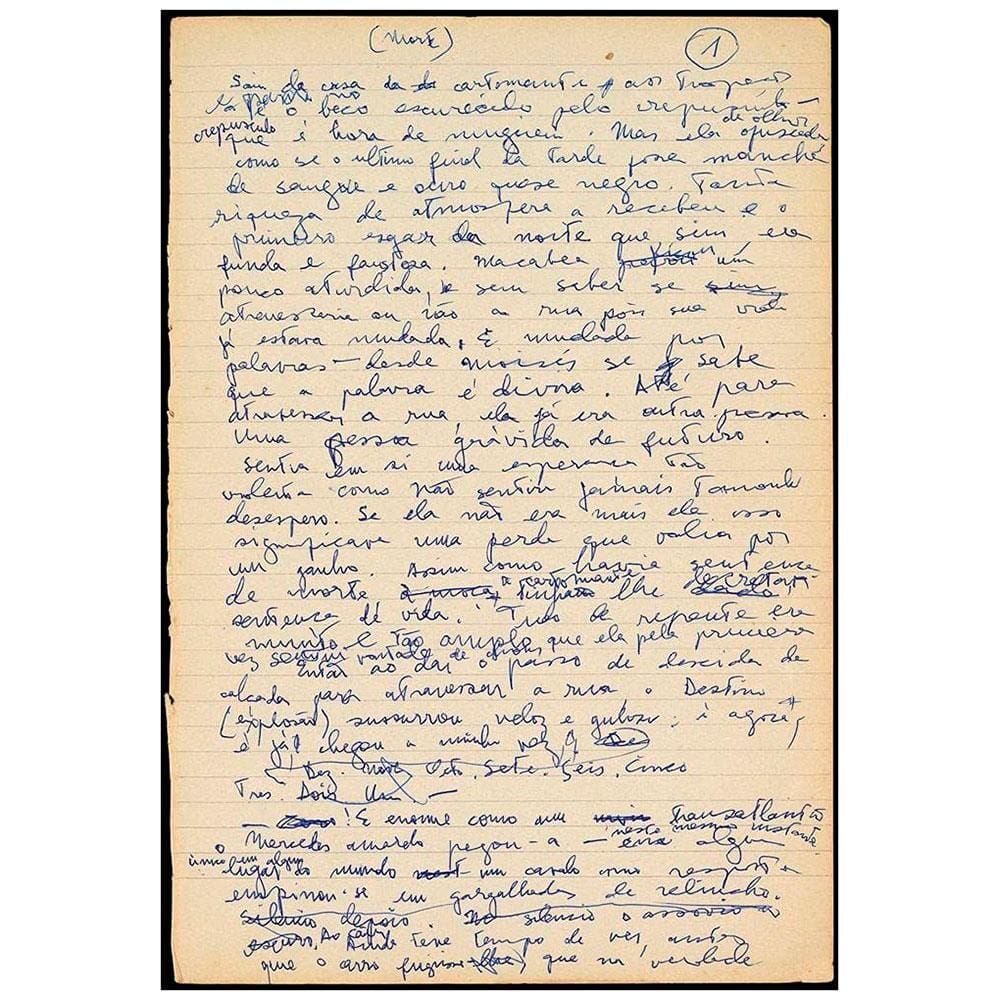 (Morte)
1
Saiu da casa da cartomante aos tropeços
parou no
e o beco escurecido pelo crepúsculo —
crepúsculo que é hora de ninguém. Mas ela de olhos ofuscados
como se o ultimo final da tarde fosse mancha
de sangue e ouro quase negro. Tanta
riqueza de atmosfera a recebeu e o
primeiro esgar da noite que sim era
funda e faustosa. Macabea ficou um
pouco aturdida, e sem saber se
atravessaria ou não a rua pois sua vida
já estava mudada. E mudada por
palavras — desde Moisés se sabe
que a palavra é divina. Até para
atravessar a rua, ela já era outra pessoa.
Uma pessoa grávida de futuro.
Sentia em si uma esperança tão
violenta como não sentira jamais tamanho
desespero. Se ela não era mais ela isso
significava uma perda que valia por
um ganho. Assim como havia sentença
de morte a cartomante lhe decretara
sentença de vida. Tudo de repente era
muito e tão amplo que ela pela primeira
vez sentiu vontade de
Então ao dar o passo de descida da
calçada para atravessar a rua o Destino
(explosão) sussurrou veloz e guloso: é agora,
é já! chegou a minha vez!
Dez. Nove Oito. Sete. Seis. Cinco
Tres. Dois Um. —
— ! E enorme como um transatlantico
o Mercedes amarelo pegou-a — neste mesmo instante em algum
único
lugar do mundo um cavalo como resposta
empinou-se em gargalhadas de relincho.
silencio depois. silencio o assovio no
escuro, Ao cair
Ainda teve tempo de ver, antes
que o carro fugisse, que na verdade